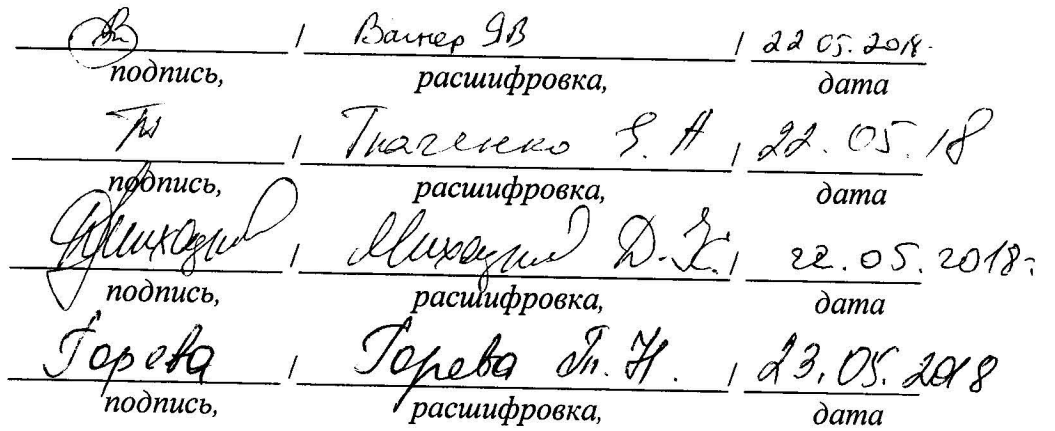 / Вагнер ЯВ / 22 05. 2018.
подпись, расшифровка, дата
/ Ткаченко Е. А / 22. 05. 18
подпись, расшифровка, дата
/ Д. К. / 22. 05. 2018г
подпись, расшифровка, дата
Горева / Горева Т. Н. / 23. 05. 2018
подпись, расшифровка, дата